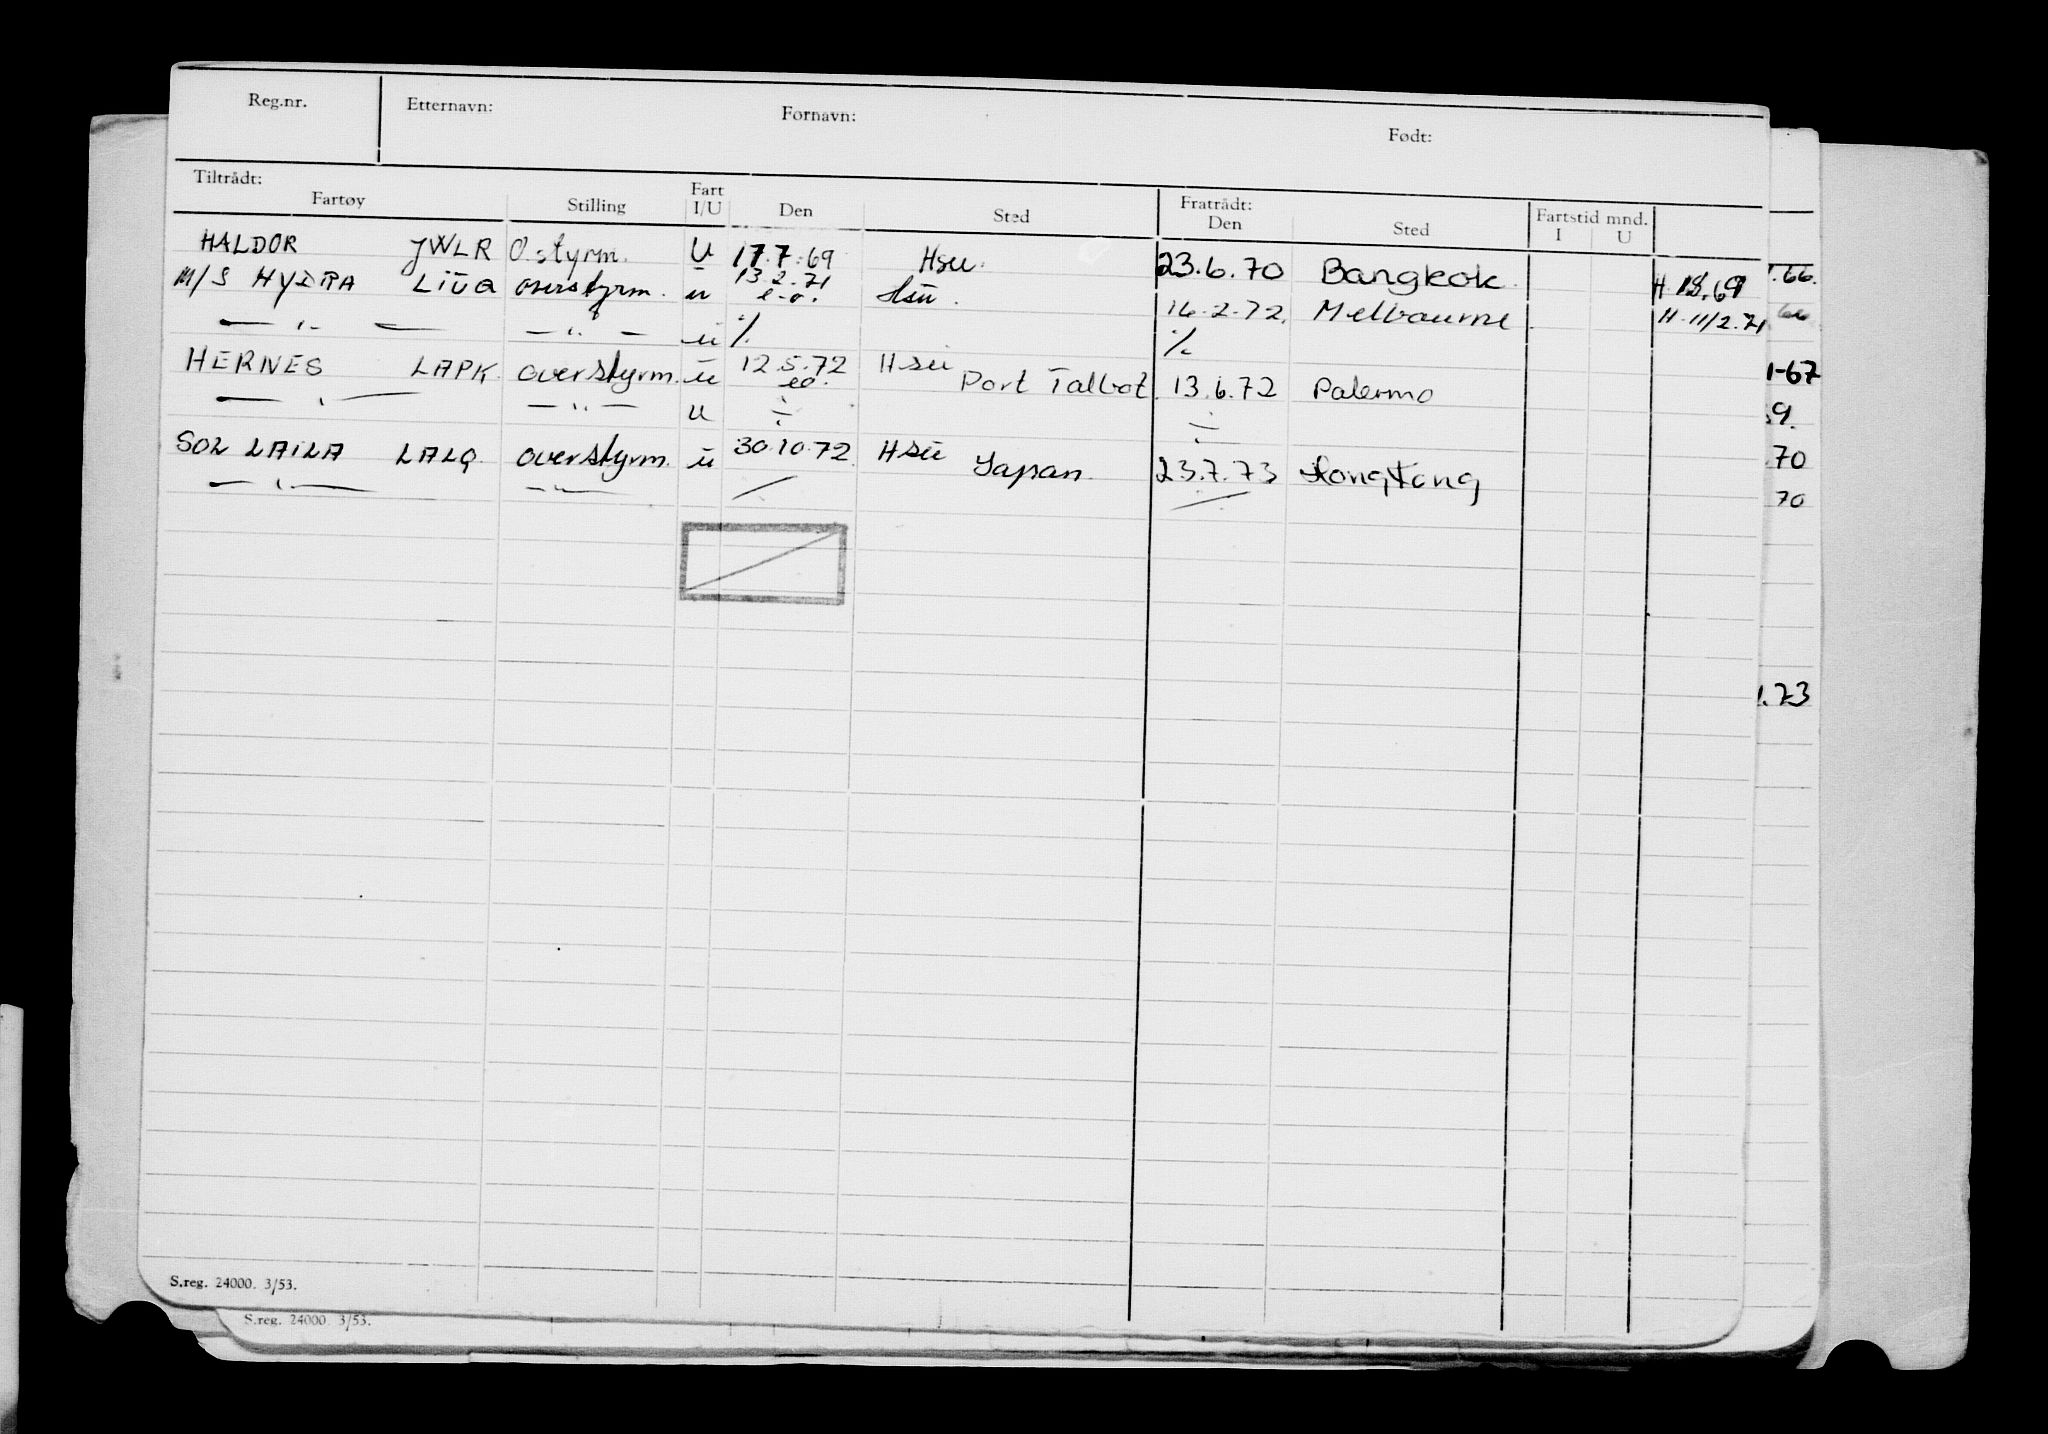 Reg.nr. Etternavn: Fornavn: Født:
Tiltrådt: Fratrådt:
Fartøy Stilling Fart I/U Den Sted Den Sted Fartstid mnd. I U
HALDOR JWLR O.styrm. U 17.7.69 Hsu. 23.6.70 Bangkok. H. 18.69 .66.
M/S HYDRA LIUQ overstyrm. u 13.2.71 e.o. Hsu. 16.2.72. Melbourne H. 11/2.71
— " — — " — u ./. ./.
HERNES LAPK. overstyrm. u 12.5.72 eo. Hsu Port Talbot. 13.6.72 Palermo 1-67
— " — — " — u ÷ ÷ 9.
SOL LAILA LALQ. overstyrm. u 30.10.72. Hsu Japan. 23.7.73 Hongkong 70
— " — — " — ./. ./. 70
.73
S.reg. 24000. 3/53.
S.reg. 24000 3/53.